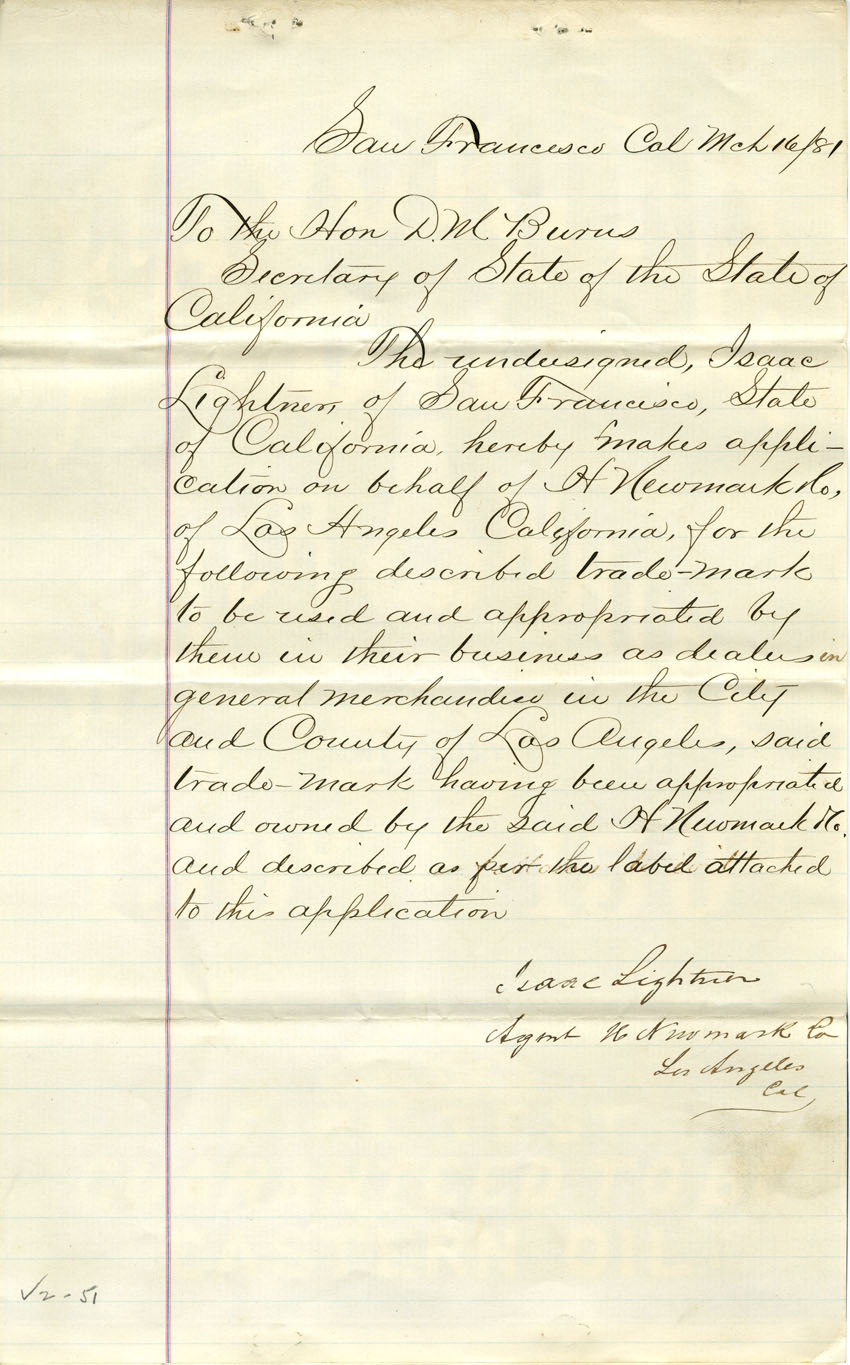 San Francesco Cal Mch 16/81
To the Hon D. M Burns
Secretary of State of the State of
California
The undersigned, Isaac
Lightner, of San Francisco, State
of California, hereby makes appli-
cation on behalf of H Newmark & Co,
of Los Angeles California, for the
following described trade-mark
to be used and appropriated by
them in their business as dealers in
general merchandise in the City
and County of Los Angeles, said
trade-mark having been appropriated
and owned by the said H Newmark & Co.
and described as per the label attached
to this application
Isaac Lightner
Agent H Newmark Co
Los Angeles
Cal
√2-51